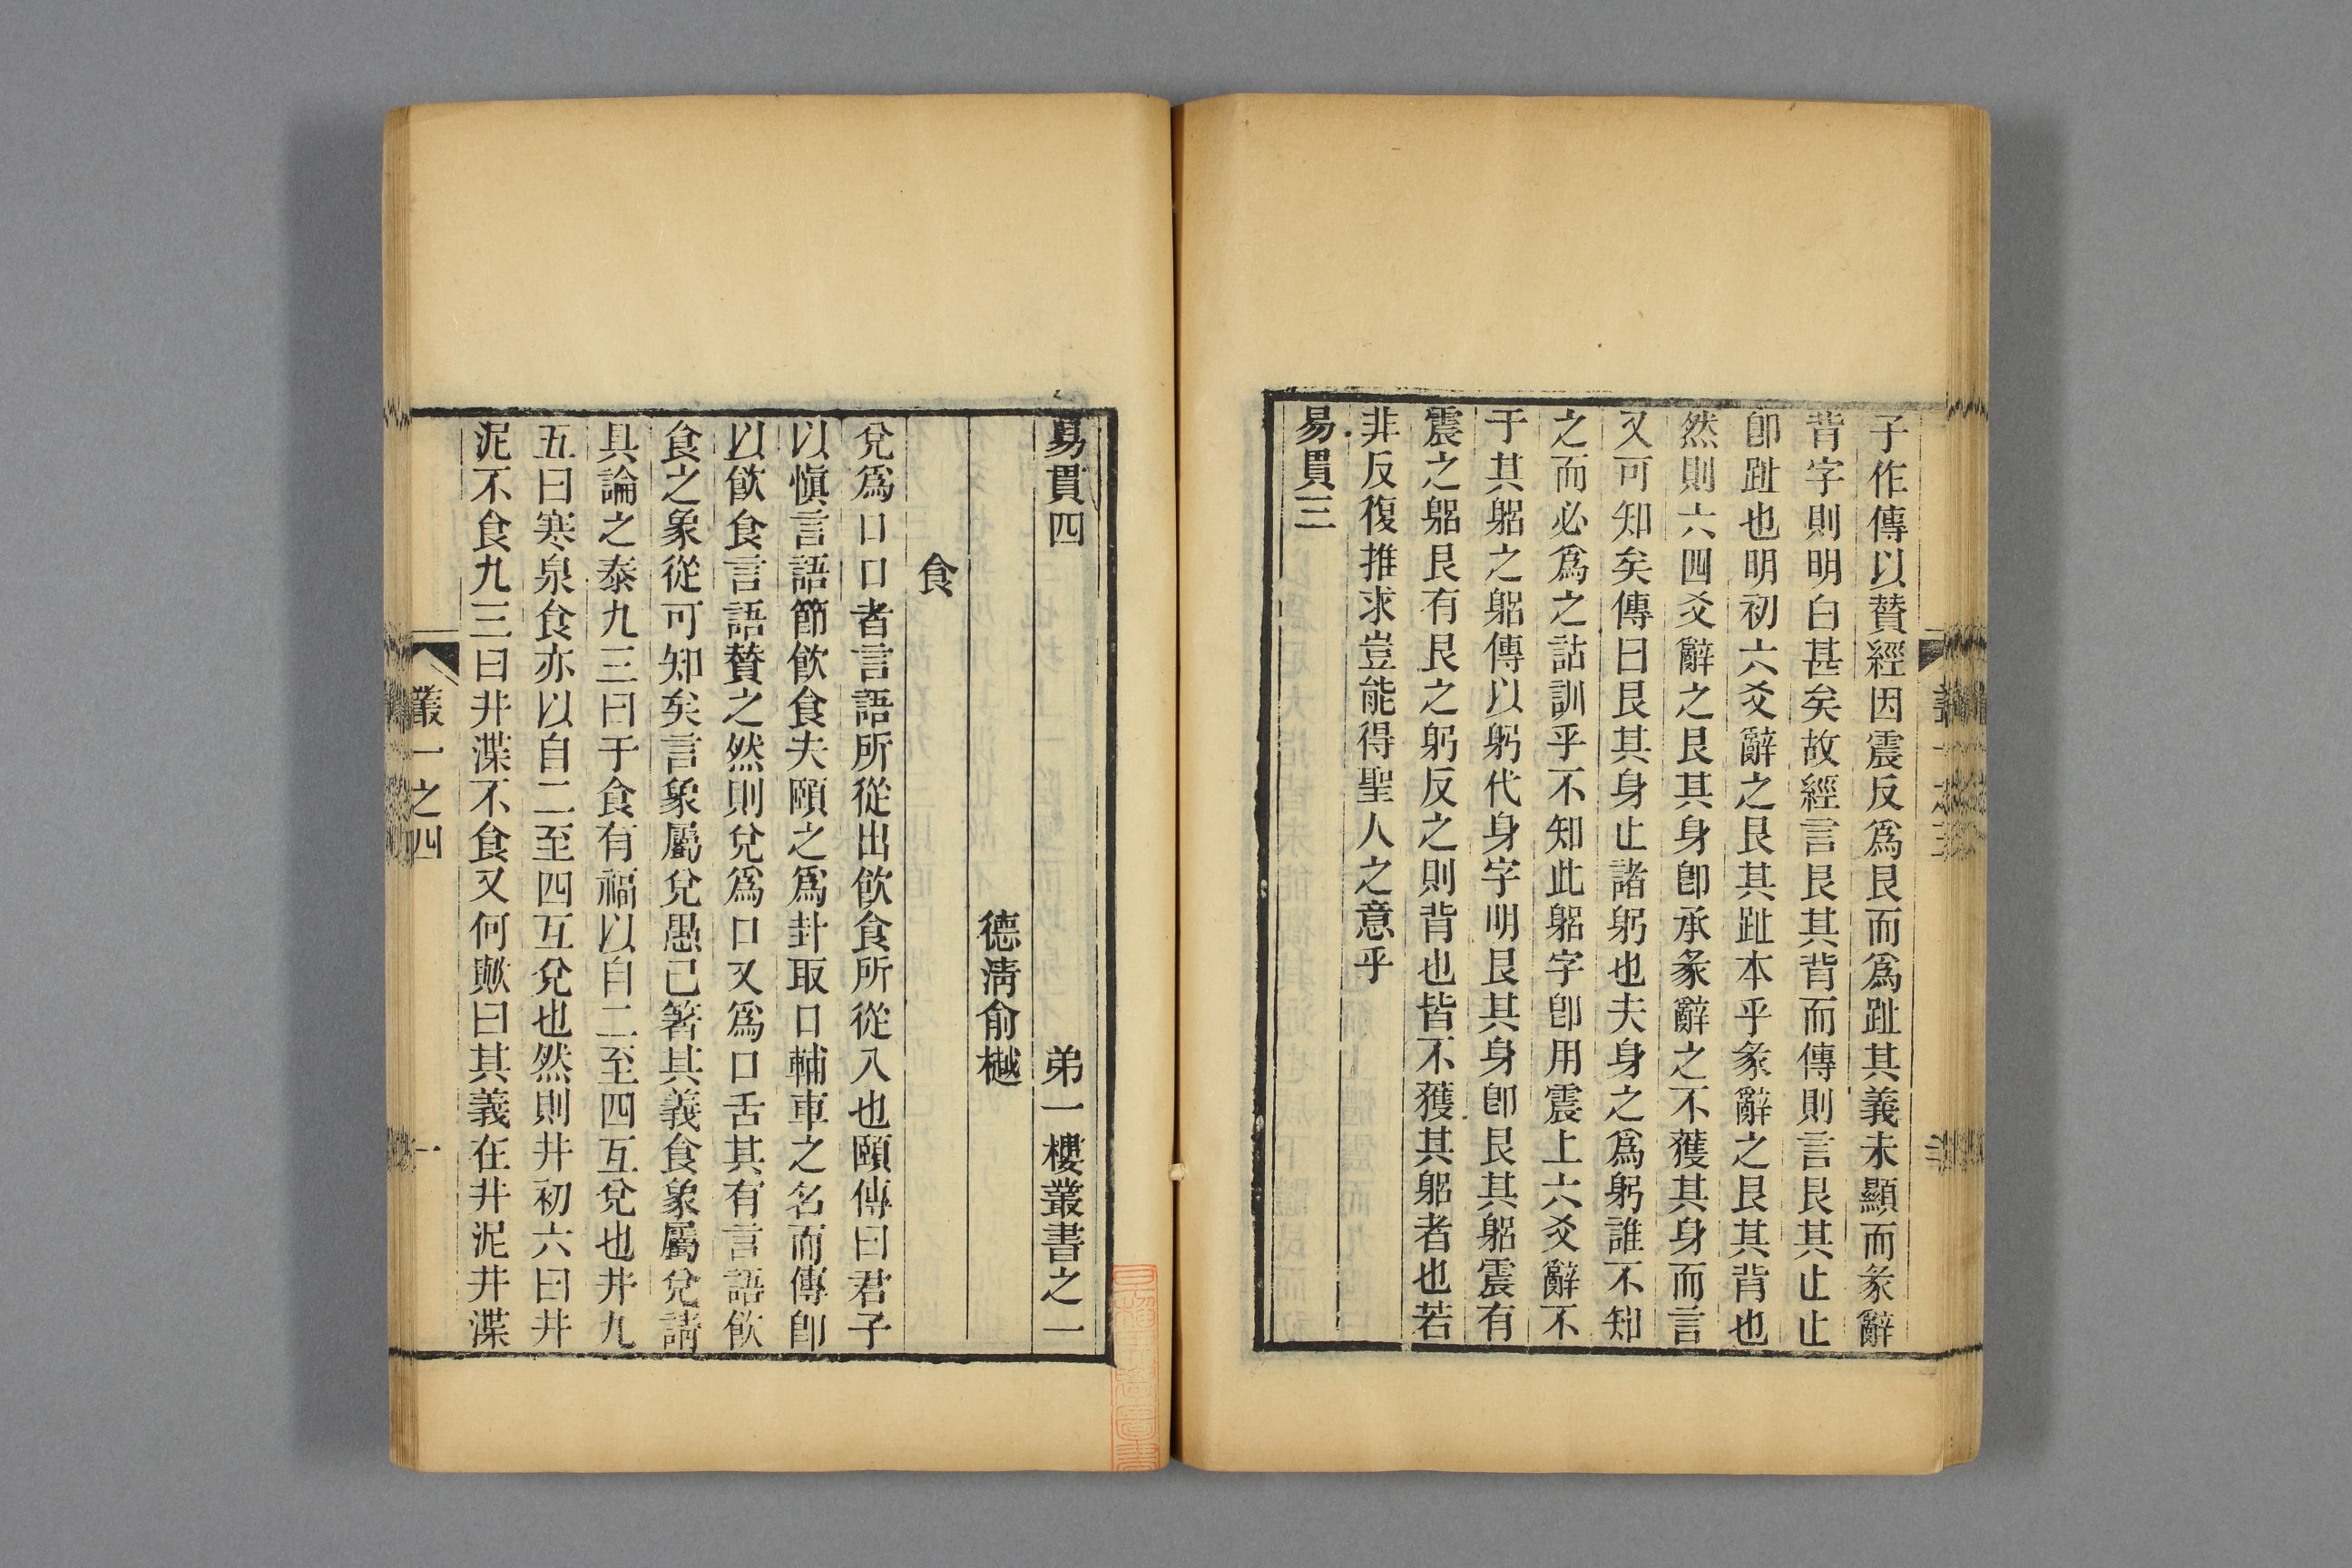 子作傳以贊經因震反爲艮而爲趾其義未顯而彖辭
背字則明白甚矣故經言艮其背而傳則言艮其止止
卽趾也明初六爻辭之艮其趾本乎彖辭之艮其背也
然則六四爻辭之艮其身卽承彖辭之不獲其身而言
又可知矣傳曰艮其身止諸躬也夫身之爲躬誰不知
之而必爲之詁訓乎不知此躳字卽用震上六爻辭不
于其躳之躳傳以躬代身字明艮其身卽艮其躳震有
震之躳艮有艮之躬反之則背也皆不獲其躳者也若
非反復推求豈能得聖人之意乎
易貫三
易貫四 弟一樓叢書之一
德淸俞樾
食
兌爲口口者言語所從出飮食所從入也頤傳曰君子
以愼言語節飮食夫頤之爲卦取口輔車之名而傳卽
以飮食言語贊之然則兌爲口又爲口舌其有言語飮
食之象從可知矣言象屬兌愚已箸其義食象屬兌請
具論之泰九三曰于食有福以自二至四互兌也井九
五曰寒泉食亦以自二至四互兌也然則井初六曰井
泥不食九三曰井渫不食又何歟曰其義在井泥井渫
叢一之四
一